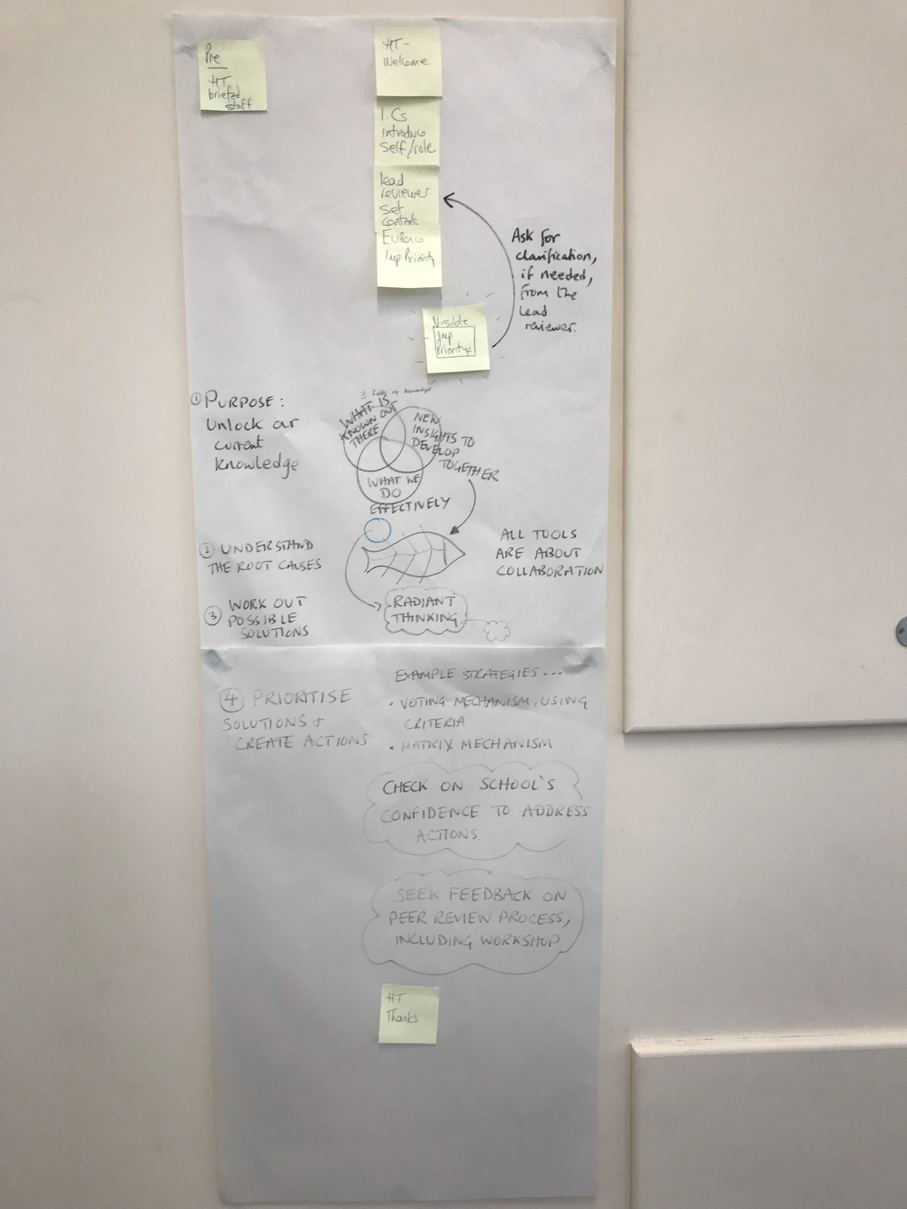 Pre
HT
briefed
staff
HT -
Welcome
I.Cs
introduce
self/role
Lead
reviewer
Set
Context
Evidence
Imp Priority
Ask for
clarification,
if needed,
from the
lead
reviewer.
Visible
Imp
Priority
① PURPOSE:
Unlock our
current
knowledge
3 fields of knowledge
WHAT IS
KNOWN OUT
THERE
NEW
INSIGHTS TO
DEVELOP
TOGETHER
WHAT WE
DO
EFFECTIVELY
② UNDERSTAND
THE ROOT CAUSES
ALL TOOLS
ARE ABOUT
COLLABORATION
③ WORK OUT
POSSIBLE
SOLUTIONS
RADIANT
THINKING
④ PRIORITISE
SOLUTIONS +
CREATE ACTIONS
EXAMPLE STRATEGIES...
• VOTING MECHANISM, USING
CRITERIA
• MATRIX MECHANISM
CHECK ON SCHOOL'S
CONFIDENCE TO ADDRESS
ACTIONS
SEEK FEEDBACK ON
PEER REVIEW PROCESS,
INCLUDING WORKSHOP
HT
Thanks